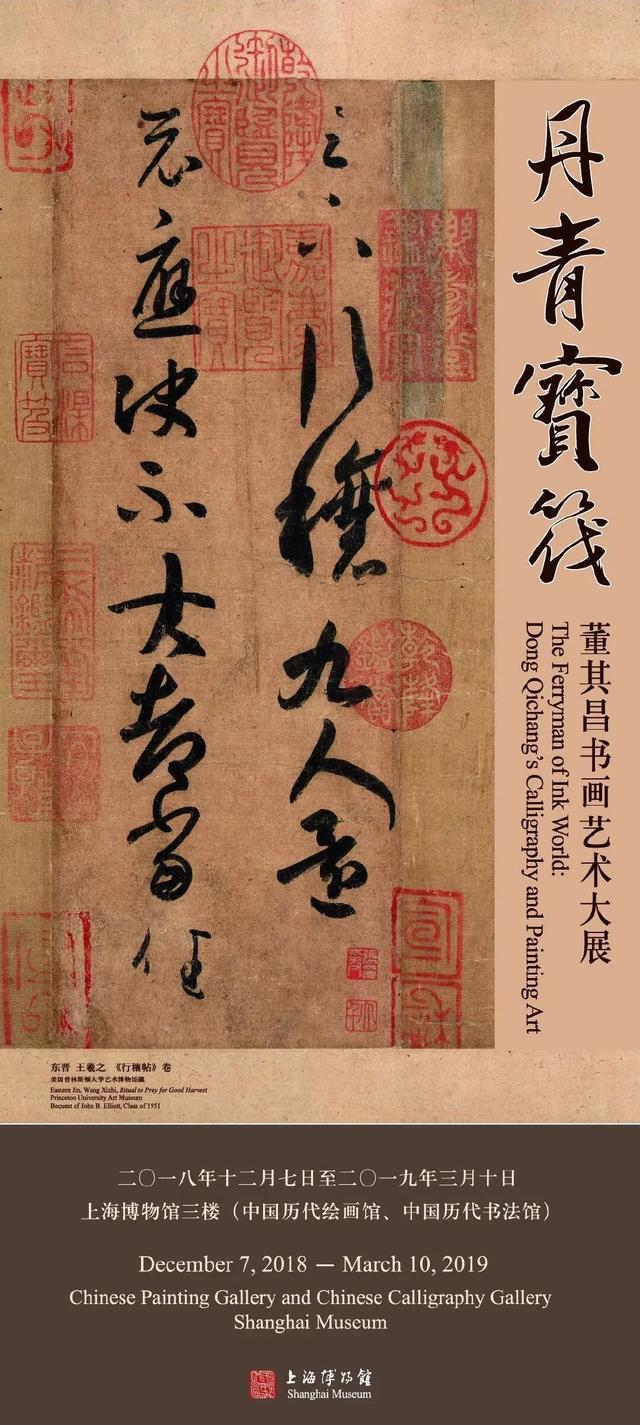 丹青寶筏
董其昌书画艺术大展
The Ferryman of Ink World:
Dong Qichang's Calligraphy and Painting Art
九人還
不大都當任
东晋 王羲之 《行穰帖》卷
美国普林斯顿大学艺术博物馆藏
Eastern Jin, Wang Xizhi, Ritual to Pray for Good Harvest
Princeton University Art Museum
Bequest of John B. Elliott, Class of 1951
二〇一八年十二月七日至二〇一九年三月十日
上海博物馆三楼（中国历代绘画馆、中国历代书法馆）
December 7, 2018 — March 10, 2019
Chinese Painting Gallery and Chinese Calligraphy Gallery
Shanghai Museum
上海博物館
Shanghai Museum